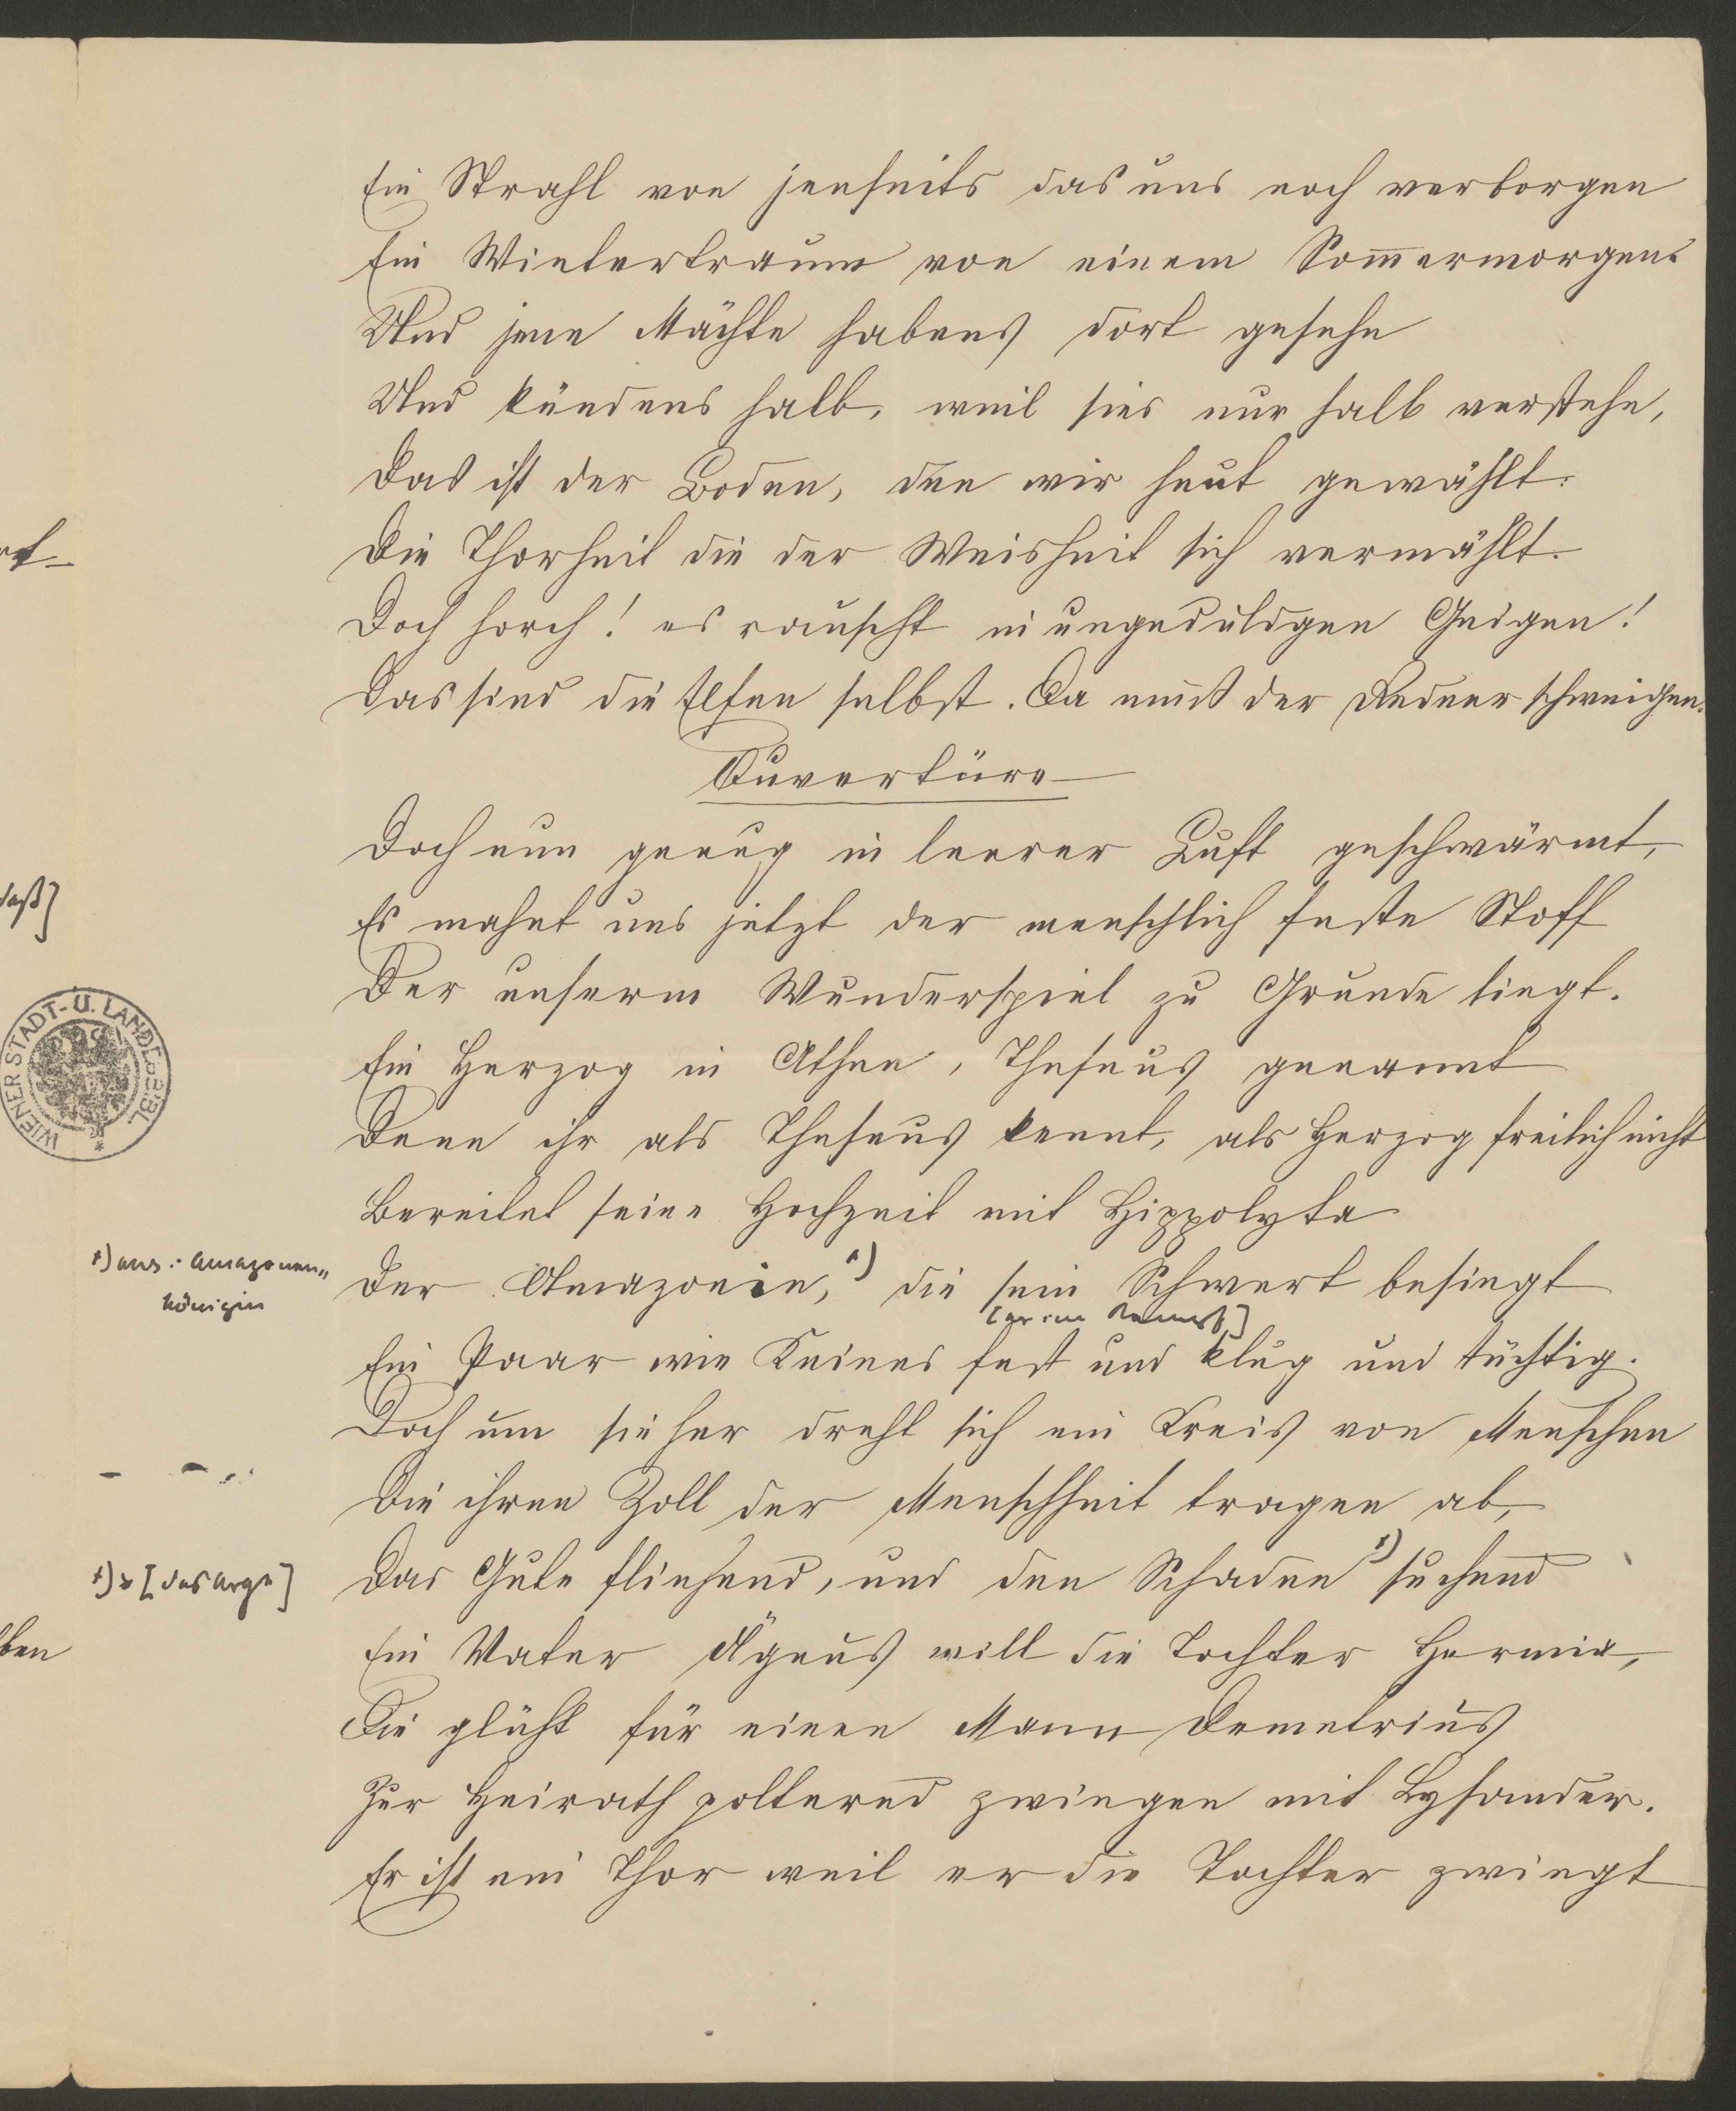 Ein Strahl von jenseits das uns noch verborgen
Ein Wintertraum von einem Som̅ermorgen.
Und jene Mächte habens dort gesehn
Und kündens halb, weil sies nur halb verstehn,
Das ist der Boden, den wir heut gewählt.
Die Thorheit die der Weisheit sich vermählt.
Doch horch! es rauscht in ungeduldgen Geigen!
Das sind die Elfen selbst. Da muß der Redner schweigen.
Ouvertüre
Doch nun genug in leerer Luft geschwärmt,
Es mahnt uns jetzt der menschlich feste Stoff
Der unserm Wunderspiel zu Grunde liegt.
Ein Herzog in Athen, Theseus genannt
Denn ihr als Theseus kennt, als Herzog freilich nicht
Bereitet seine Hochzeit mit Hippolyta
Der Amazonin, 1) die sein Schwert besiegt
Ein Paar wie Keines fest und klug und tüchtig.
Doch um sie her dreht sich ein Kreis von Menschen
Die ihren Zoll der Menschheit tragen ab,
Das Gute fliehend, und den Schaden 1) suchend
Ein Vater Ägeus will die Tochter Hermia,
Die glüht für einen Mann Demetrius
Zur Heirath polternd zwingen mit Lysander.
Er ist ein Thor weil er die Tochter zwingt
daß]
WIENER STADT- U. LANDESBIBL.
1) aus: Amazonen„
königin
1) [das arge]